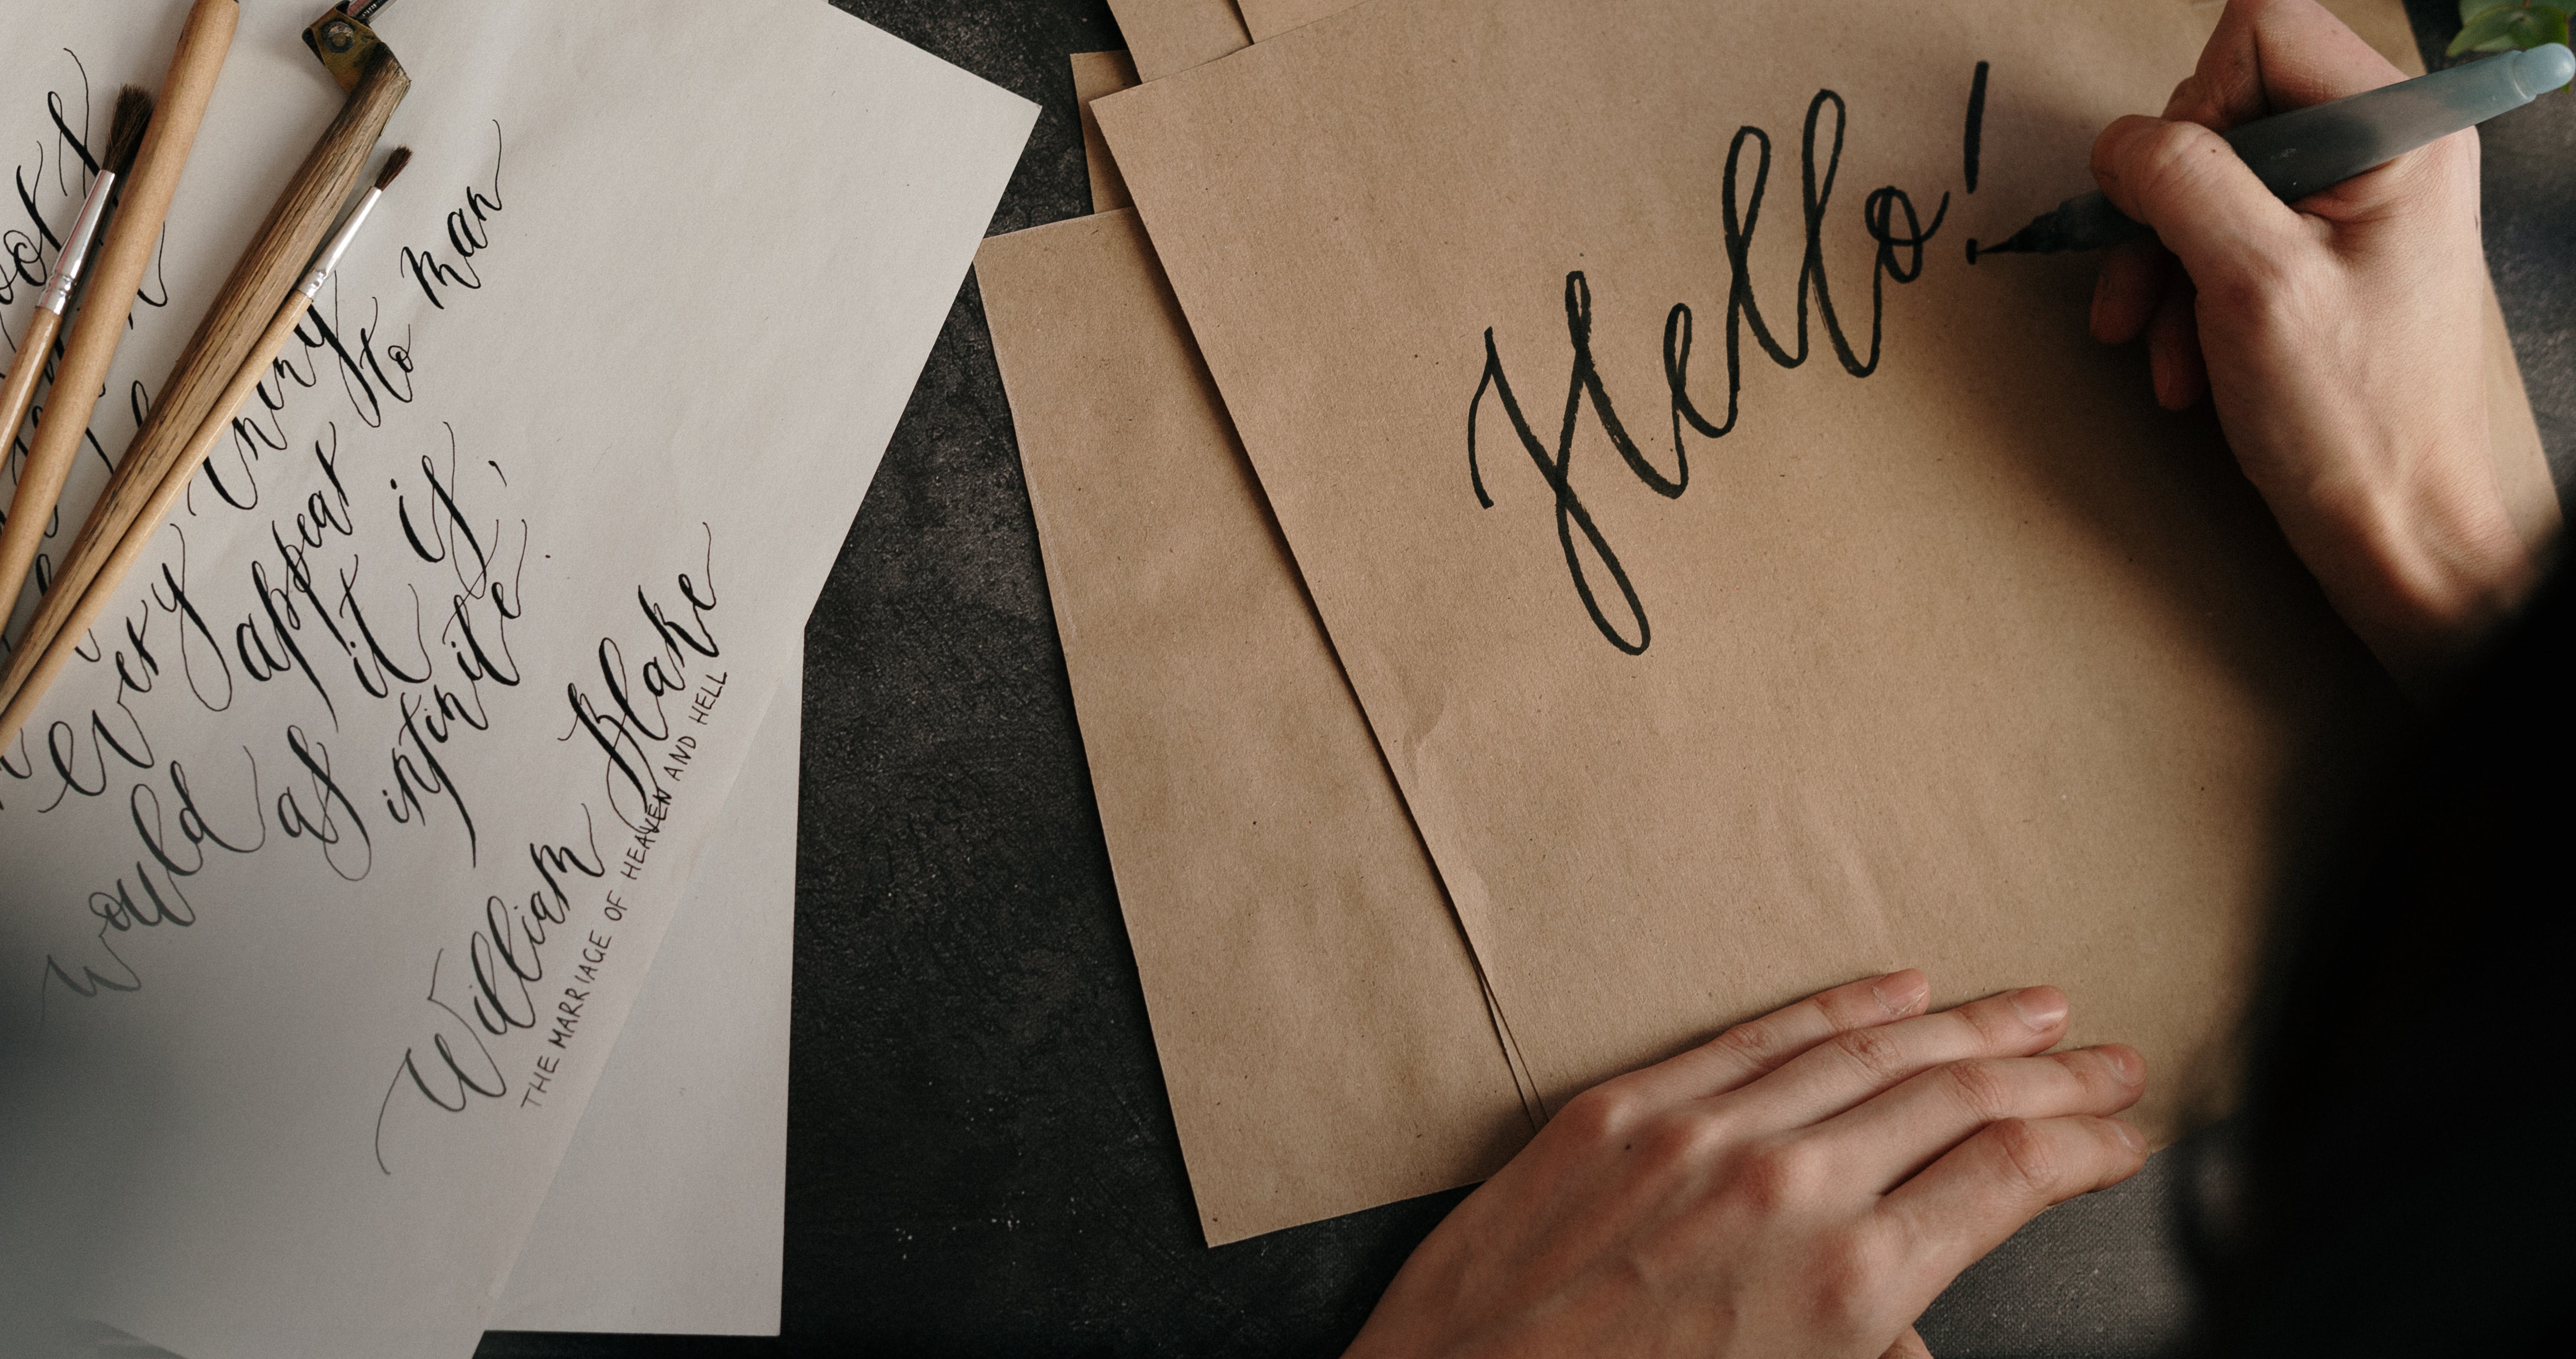 every thing
would appear to man
as it is,
infinite.
William Blake
THE MARRIAGE OF HEAVEN AND HELL
Hello!